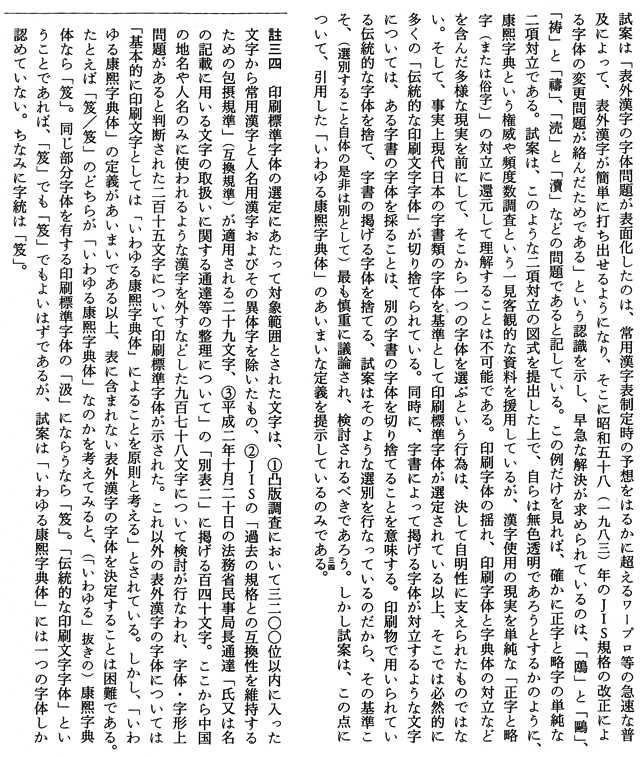 試案は「表外漢字の字体問題が表面化したのは、常用漢字表制定時の予想をはるかに超えるワープロ等の急速な普
及によって、表外漢字が簡単に打ち出せるようになり、そこに昭和五十八（一九八三）年のJIS規格の改正によ
る字体の変更問題が絡んだためである」という認識を示し、早急な解決が求められているのは、「鴎」と「鷗」、
「祷」と「禱」、「涜」と「瀆」などの問題であると記している。この例だけを見れば、確かに正字と略字の単純な
二項対立である。試案は、このような二項対立の図式を提出した上で、自らは無色透明であろうとするかのように、
康熙字典という権威や頻度数調査という一見客観的な資料を援用しているが、漢字使用の現実を単純な「正字と略
字（または俗字）」の対立に還元して理解することは不可能である。印刷字体の揺れ、印刷字体と字典体の対立など
を含んだ多様な現実を前にして、そこから一つの字体を選ぶという行為は、決して自明性に支えられたものではな
い。そして、事実上現代日本の字書類の字体を基準として印刷標準字体が選定されている以上、そこでは必然的に
多くの「伝統的な印刷文字字体」が切り捨てられている。同時に、字書によって掲げる字体が対立するような文字
については、ある字書の字体を採ることは、別の字書の字体を切り捨てることを意味する。印刷物で用いられてい
る伝統的な字体を捨て、字書の掲げる字体を捨てる、試案はそのような選別を行なっているのだから、その基準こ
そ、（選別すること自体の是非は別として）最も慎重に議論され、検討されるべきであろう。しかし試案は、この点に
ついて、引用した「いわゆる康熙字典体」のあいまいな定義を提示しているのみである。三四
註三四　印刷標準字体の選定にあたって対象範囲とされた文字は、①凸版調査において三二〇〇位以内に入った
文字から常用漢字と人名用漢字およびその異体字を除いたもの、②JISの「過去の規格との互換性を維持する
ための包摂規準」（互換規準）が適用される二十九文字、③平成二年十月二十日の法務省民事局長通達「氏又は名
の記載に用いる文字の取扱いに関する通達等の整理について」の「別表二」に掲げる百四十文字。ここから中国
の地名や人名のみに使われるような漢字を外すなどした九百七十八文字について検討が行なわれ、字体・字形上
問題があると判断された二百十五文字について印刷標準字体が示された。これ以外の表外漢字の字体については
「基本的に印刷文字としては「いわゆる康熙字典体」によることを原則と考える」とされている。しかし、「いわ
ゆる康熙字典体」の定義があいまいである以上、表に含まれない表外漢字の字体を決定することは困難である。
たとえば「笈／笈」のどちらが「いわゆる康熙字典体」なのかを考えてみると、（「いわゆる」抜きの）康熙字典
体なら「笈」。同じ部分字体を有する印刷標準字体の「汲」にならうなら「笈」。「伝統的な印刷文字字体」とい
うことであれば、「笈」でも「笈」でもよいはずであるが、試案は「いわゆる康熙字典体」には一つの字体しか
認めていない。ちなみに字統は「笈」。